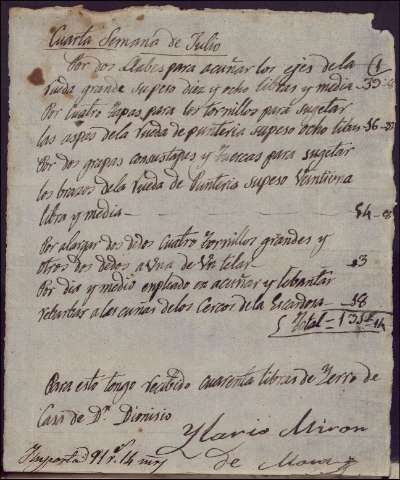 Cuarta Semana de Julio
Por dos Llabes para acuñar los ejes de la
rueda grande su peso diez y ocho libras y media
Por Cuatro tapas para los tornillos para sugetar
las aspas de la rueda de punteria su peso ocho libras 36
Por dos grapas con sus tapas y tuercas para sugetar
los brazos de la rueda de Punteria su peso Veintiuna
libra y media
Por alargar dos dedos Cuatro tornillos grandes y
otros dos dedos a una de un telar 3
Por dia y medio enpleado en acuñar y lebantar
rebantar a las cuñas de los Cercos de la 18
Total = 131
Para esto tengo recibido cuarenta libras de Yerro de
Casa de Dn Dionisio
Ylario Miron
de
Ymporta 91 r 14 mrs